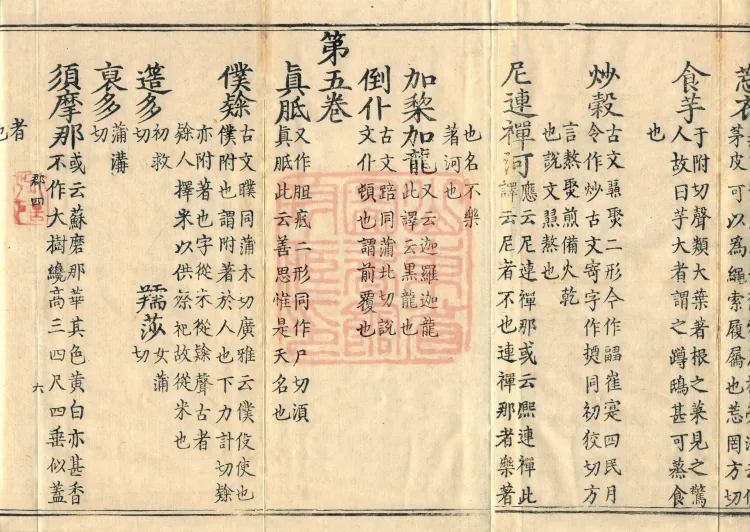 茅皮可以為繩索履屩也葱罔方切
食芋
于附切聲類大葉著根之菜見之驚
人故曰芋大者謂之蹲鴟甚可蒸食
也
炒穀
古文二形今作崔寔四民月
令作炒古文寄字作同初狡切方
言熬聚煎備火乾
也說文熬也
尼連禪河
應云尼連禪那或云熙連禪此
譯云尼者不也連禪那者樂著
也名不樂
著河也
加黎加龍
又云迦羅迦龍
此譯云黑龍也
倒仆
古文踣同蒲北切說
文仆頓也謂前覆也
第五卷
眞胝
又作二形同作尸切湏
眞胝此云善思惟是天名也
僕隸
古文同蒲木切廣雅云僕役使也
僕附也謂附著於人也下力計切隸
亦附著也字從米從聲古者
隸人擇米以供祭祀故從米也
莎
女蒲
切
多
初救
切
裒多
蒲溝
切
須摩那
或云蘇磨那華其色黃白亦甚香
不作大樹纔高三四尺四垂似蓋
者
也
郡四
六